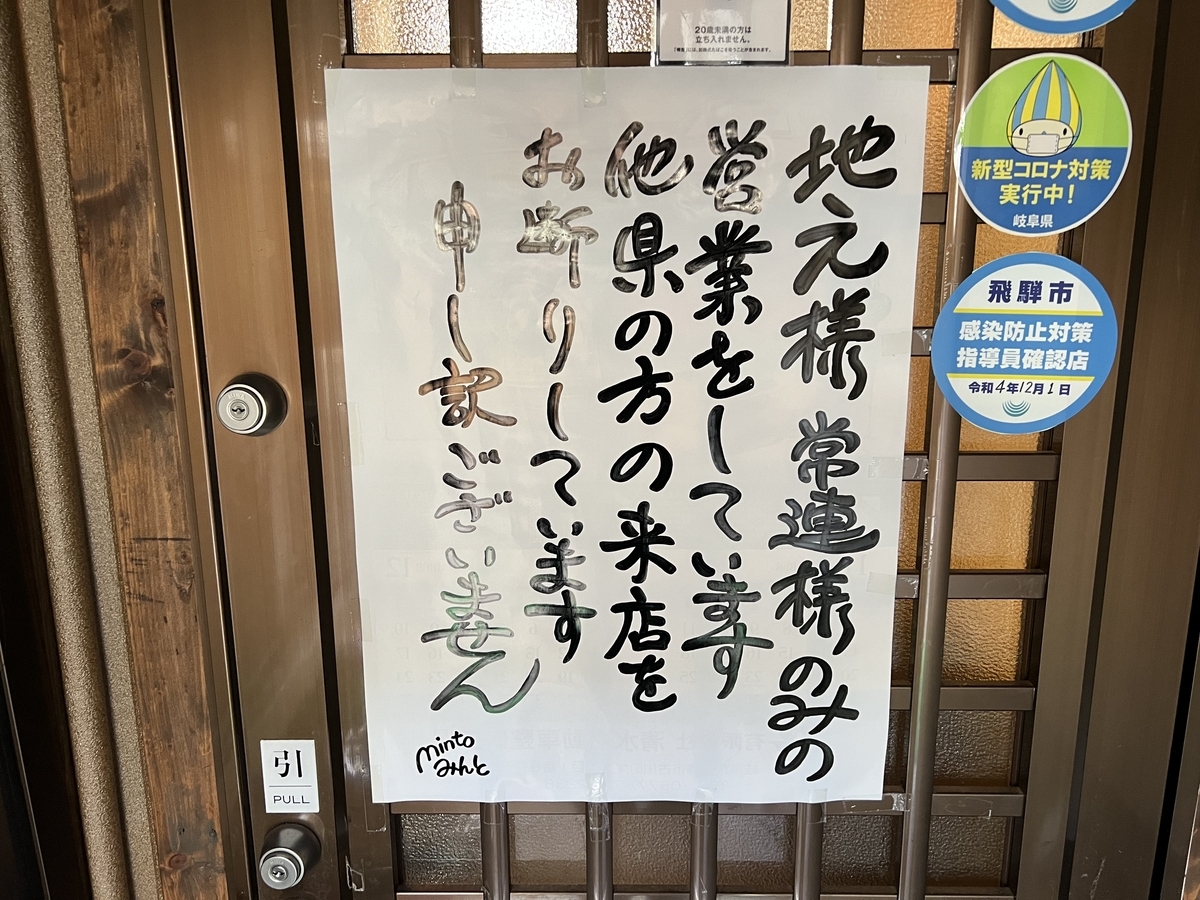 20歳未満の方は
立ち入れません。
地元様 常連様のみの
営業をしています
他県の方の来店を
お断りしています
申し訳ございません
minto
みんと
新型コロナ対策
実行中!
岐阜県
飛騨市
感染防止対策
指導員確認店
令和4年12月1日
引
PULL